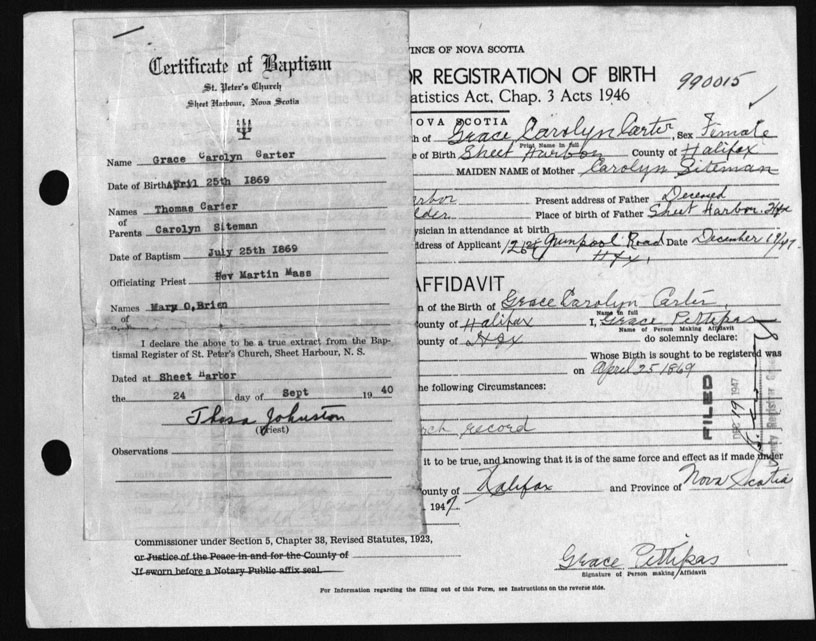 Certificate of Baptism
St. Peter's Church
Sheet Harbour, Nova Scotia
Name Grace Carolyn Carter
Date of Birth April 25th 1869
Names Thomas Carter
of
Parents Carolyn Siteman
Date of Baptism July 25th 1869
Officiating Priest Rev Martin Mass
Names Mary O,Brien
of
I declare the above to be a true extract from the Bap-
tismal Register of St. Peter's Church, Sheet Harbour, N. S.
Dated at Sheet Harbor
the 24 day of Sept 19 40
Johnston
(Priest)
Observations
VINCE OF NOVA SCOTIA
OR REGISTRATION OF BIRTH
990015
tatistics Act, Chap. 3 Acts 1946
NOVA SCOTIA
h of Grace Carolyn Carter, Sex Female
Print Name in full
e of Birth Sheet Harbor County of Halifax
MAIDEN NAME of Mother Carolyn Siteman
arbor Present address of Father Deceased
lder Place of birth of Father Sheet Harbor. Hfx
ysician in attendance at birth
ddress of Applicant Road Date December 19/47
Hfx.
AFFIDAVIT
n of the Birth of Grace Carolyn Carter,
Name in full
ounty of Halifax I, Grace Pettipas
Name of Person Making Affidavit
ounty of Hfx do solemnly declare:
Whose Birth is sought to be registered was
on April 25 1869
he following Circumstances:
rch record
FILED
DEC 19 1947
it to be true, and knowing that it is of the same force and effect as if made under
ounty of Halifax and Province of Nova Scotia
1947.
Commissioner under Section 5, Chapter 38, Revised Statutes, 1923,
or Justice of the Peace in and for the County of
If sworn before a Notary Public affix seal.
Grace Pettipas
Signature of Person making Affidavit
For Information regarding the filling out of this Form, see Instructions on the reverse side.